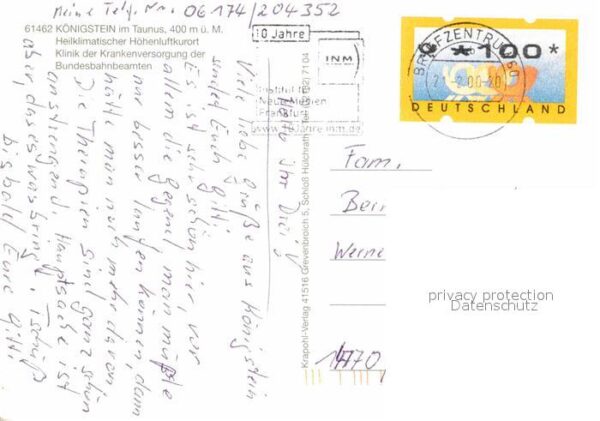 Meine Telef. Nr. 06174/204352
61462 KÖNIGSTEIN im Taunus, 400 m ü. M.
Heilklimatischer Höhenluftkurort
Klinik der Krankenversorgung der
Bundesbahnbeamten
Hallo ihr Drei,
Viele liebe Grüße aus Königstein
sendet Euch Gitti.
Es ist sehr schön hier, vor
allem die Gegend, man müßte
nur besser laufen können, dann
hätt man noch mehr davon.
Die Therapien sind ganz schön
anstrengend, Hauptsache ist
aber, daß es was bringt. Tschüß
bis bald Eure Gitti
Krapohl-Verlag 41516 Grevenbroich 5, Schloß Hülchrath
10 Jahre
INM
Institut für
Neue Medien
Frankfurt
www.10jahre.inm.de
BRIEFZENTRUM 60
*100*
DEUTSCHLAND
Fam.
Bern
Werne
privacy protection
Datenschutz